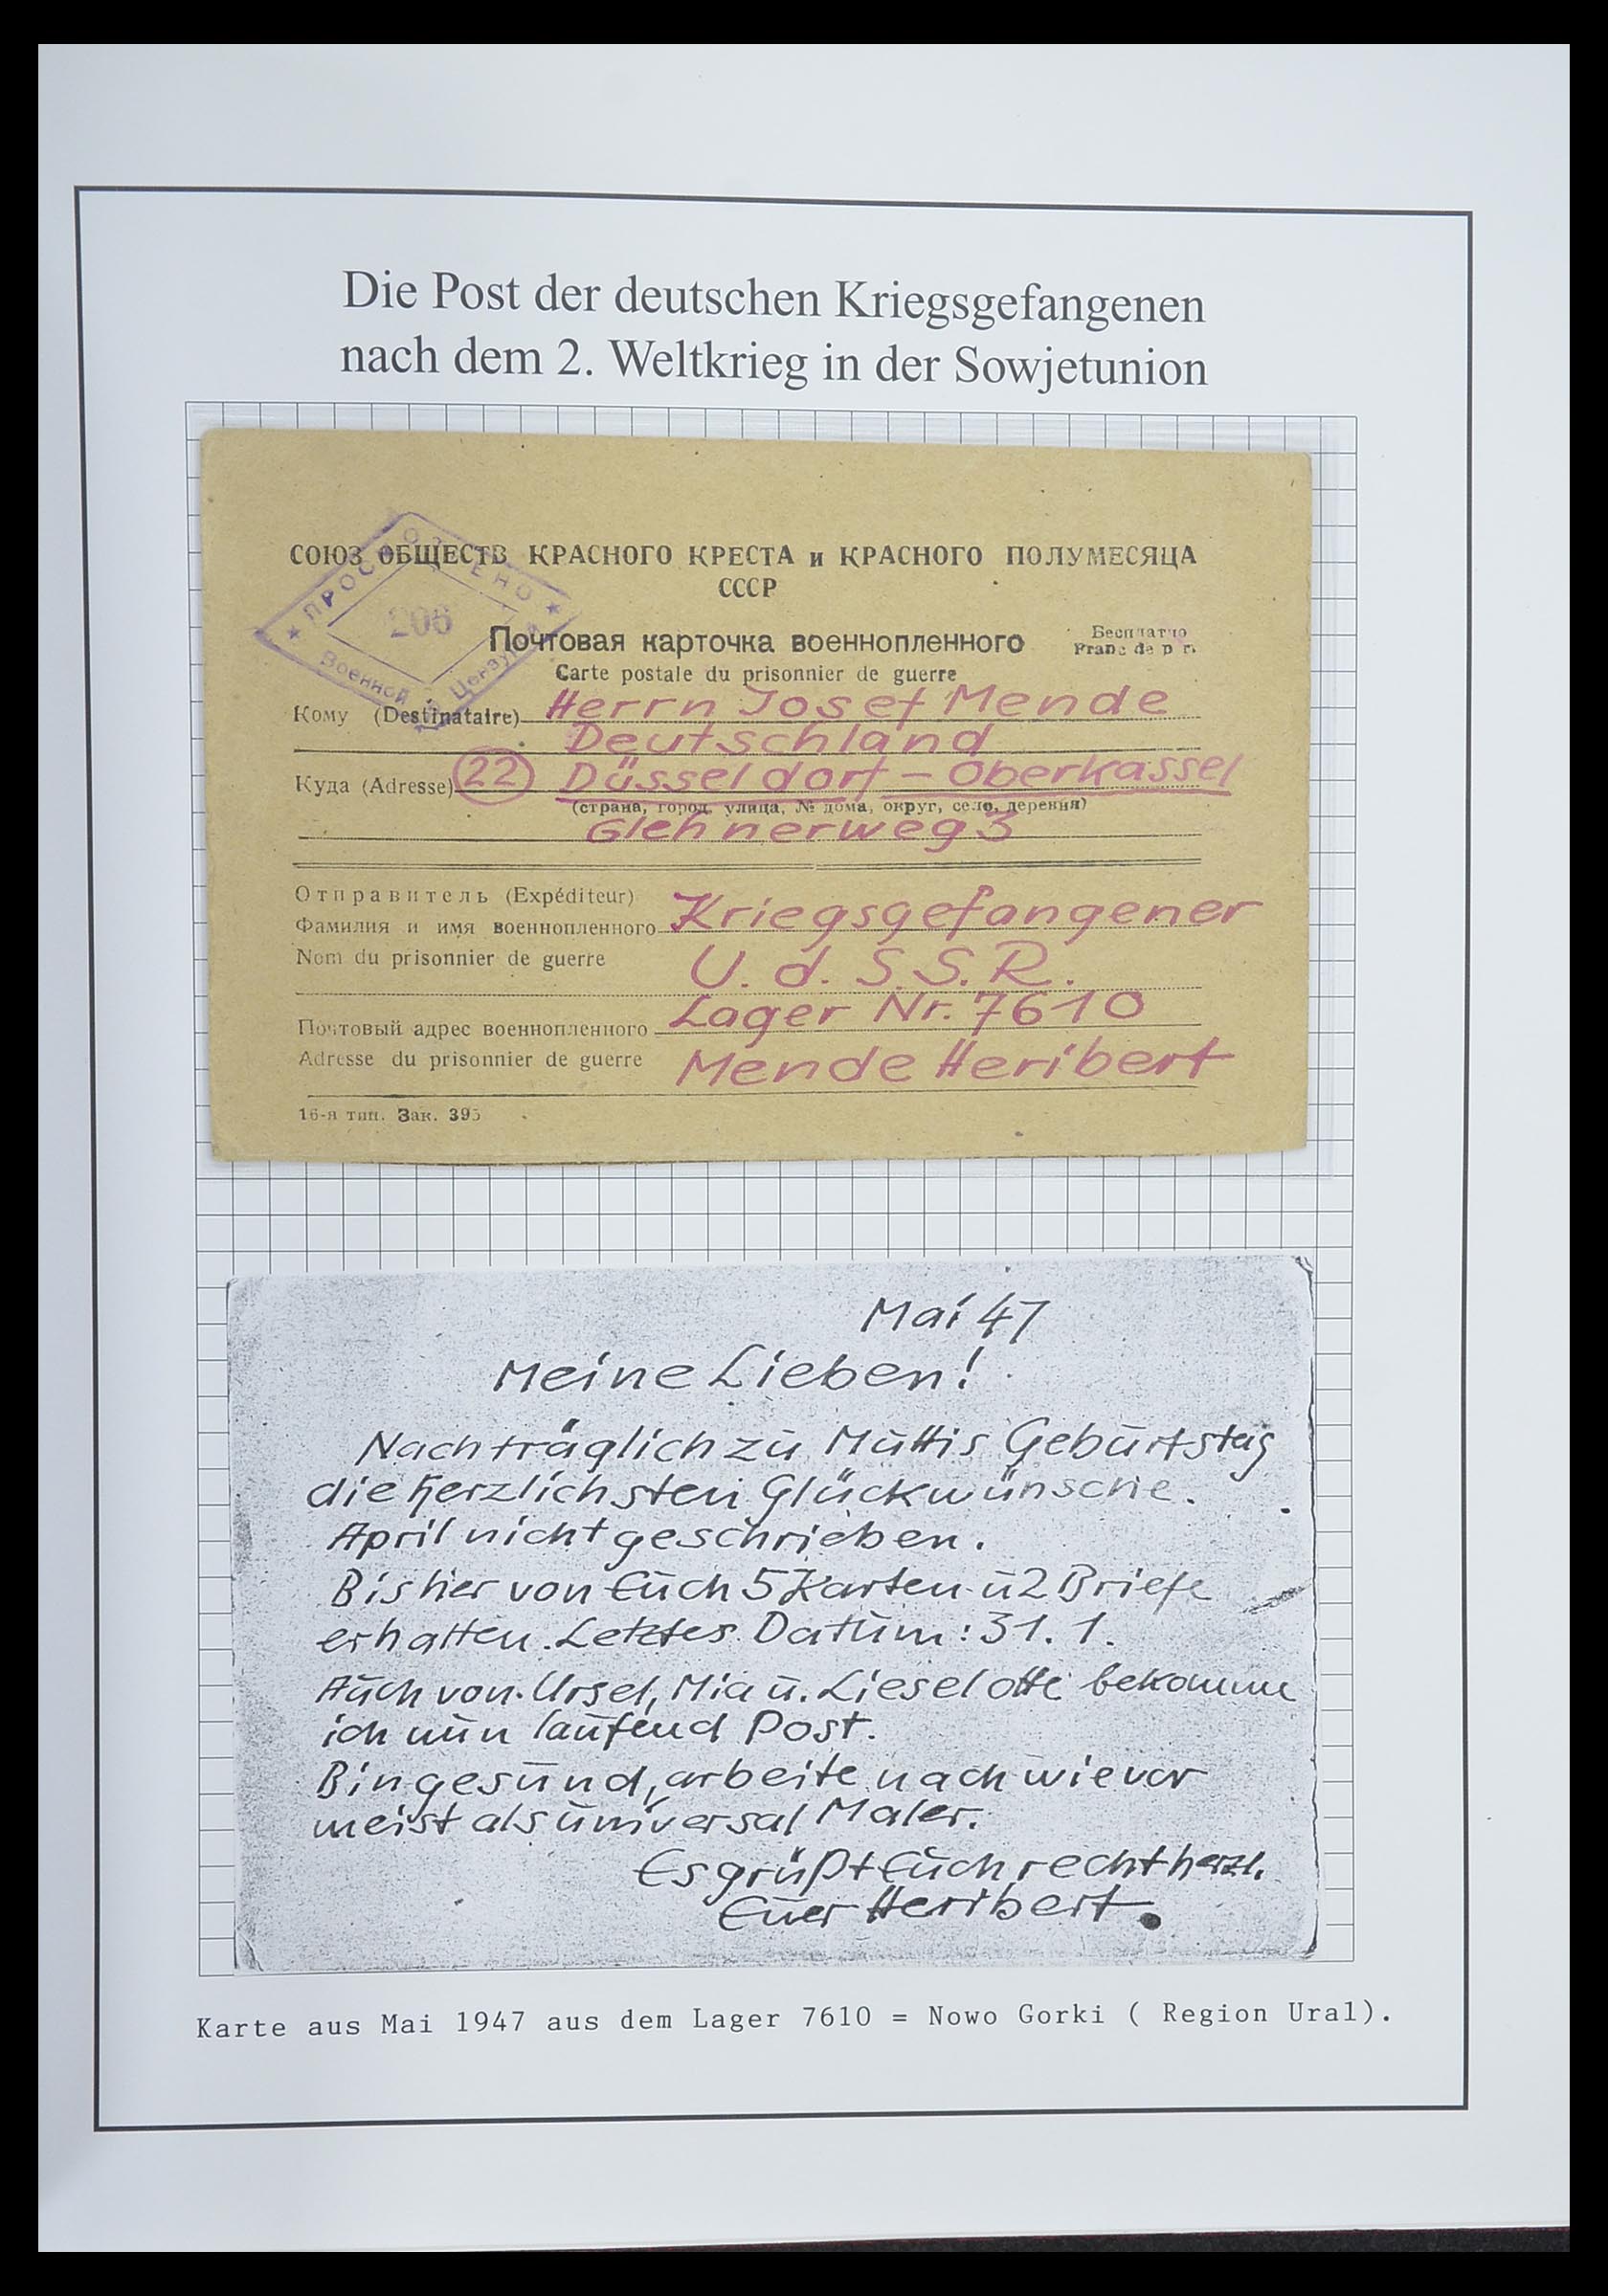 Die Post der deutschen Kriegsgefangenen
nach dem 2. Weltkrieg in der Sowjetunion
СОЮЗ ОБЩЕСТВ КРАСНОГО КРЕСТА и КРАСНОГО ПОЛУМЕСЯЦА
СССР
ПРОСМОТРЕНО
206
Военной Цензурой
Почтовая карточка военнопленного
Бесплатно
Franc de port
Carte postale du prisonnier de guerre
Кому (Destinataire) Herrn Josef Mende
Deutschland
Куда (Adresse) (22) Düsseldorf – Oberkassel
(страна, город, улица, № дома, округ, село, деревня)
Glehnerweg 3
Отправитель (Expéditeur)
Фамилия и имя военнопленного Kriegsgefangener
Nom du prisonnier de guerre
U. d. S. S. R.
Почтовый адрес военнопленного Lager Nr. 7610
Adresse du prisonnier de guerre Mende Heribert
16-я тип. Зак. 395
Mai 47
Meine Lieben!
Nachträglich zu Muttis Geburtstag
die herzlichsten Glückwünsche.
April nicht geschrieben.
Bisher von Euch 5 Karten u 2 Briefe
erhalten. Letztes Datum: 31. 1.
Auch von Ursel, Mia u. Lieselotte bekomme
ich nun laufend Post.
Bin gesund, arbeite nach wie vor
meist als universal Maler.
Es grüßt Euch recht herzl.
Euer Heribert.
Karte aus Mai 1947 aus dem Lager 7610 = Nowo Gorki ( Region Ural).